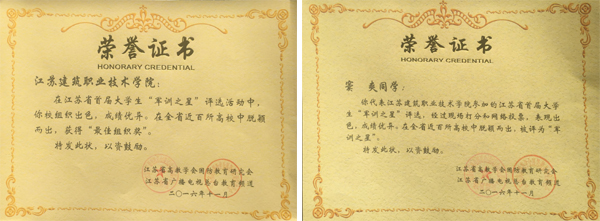 荣誉证书
HONORARY CREDENTIAL
江苏建筑职业技术学院：
在江苏省首届大学生“军训之星”评选活动中，
你校组织出色，成绩优异。在全省近百所高校中脱颖
而出，获得“最佳组织奖”。
特发此状，以资鼓励。
江苏省高教学会国防教育研究会
江苏省广播电视总台教育频道
二〇一六年十一月
荣誉证书
HONORARY CREDENTIAL
窦 爽同学：
你代表江苏建筑职业技术学院参加的江苏省首届大学
生“军训之星”评选，经过现场打分和网络投票，表现出
色，成绩优异。在全省近百所高校中脱颖而出，被评为“军
训之星”。
特发此状，以资鼓励。
江苏省高教学会国防教育研究会
江苏省广播电视总台教育频道
二〇一六年十一月